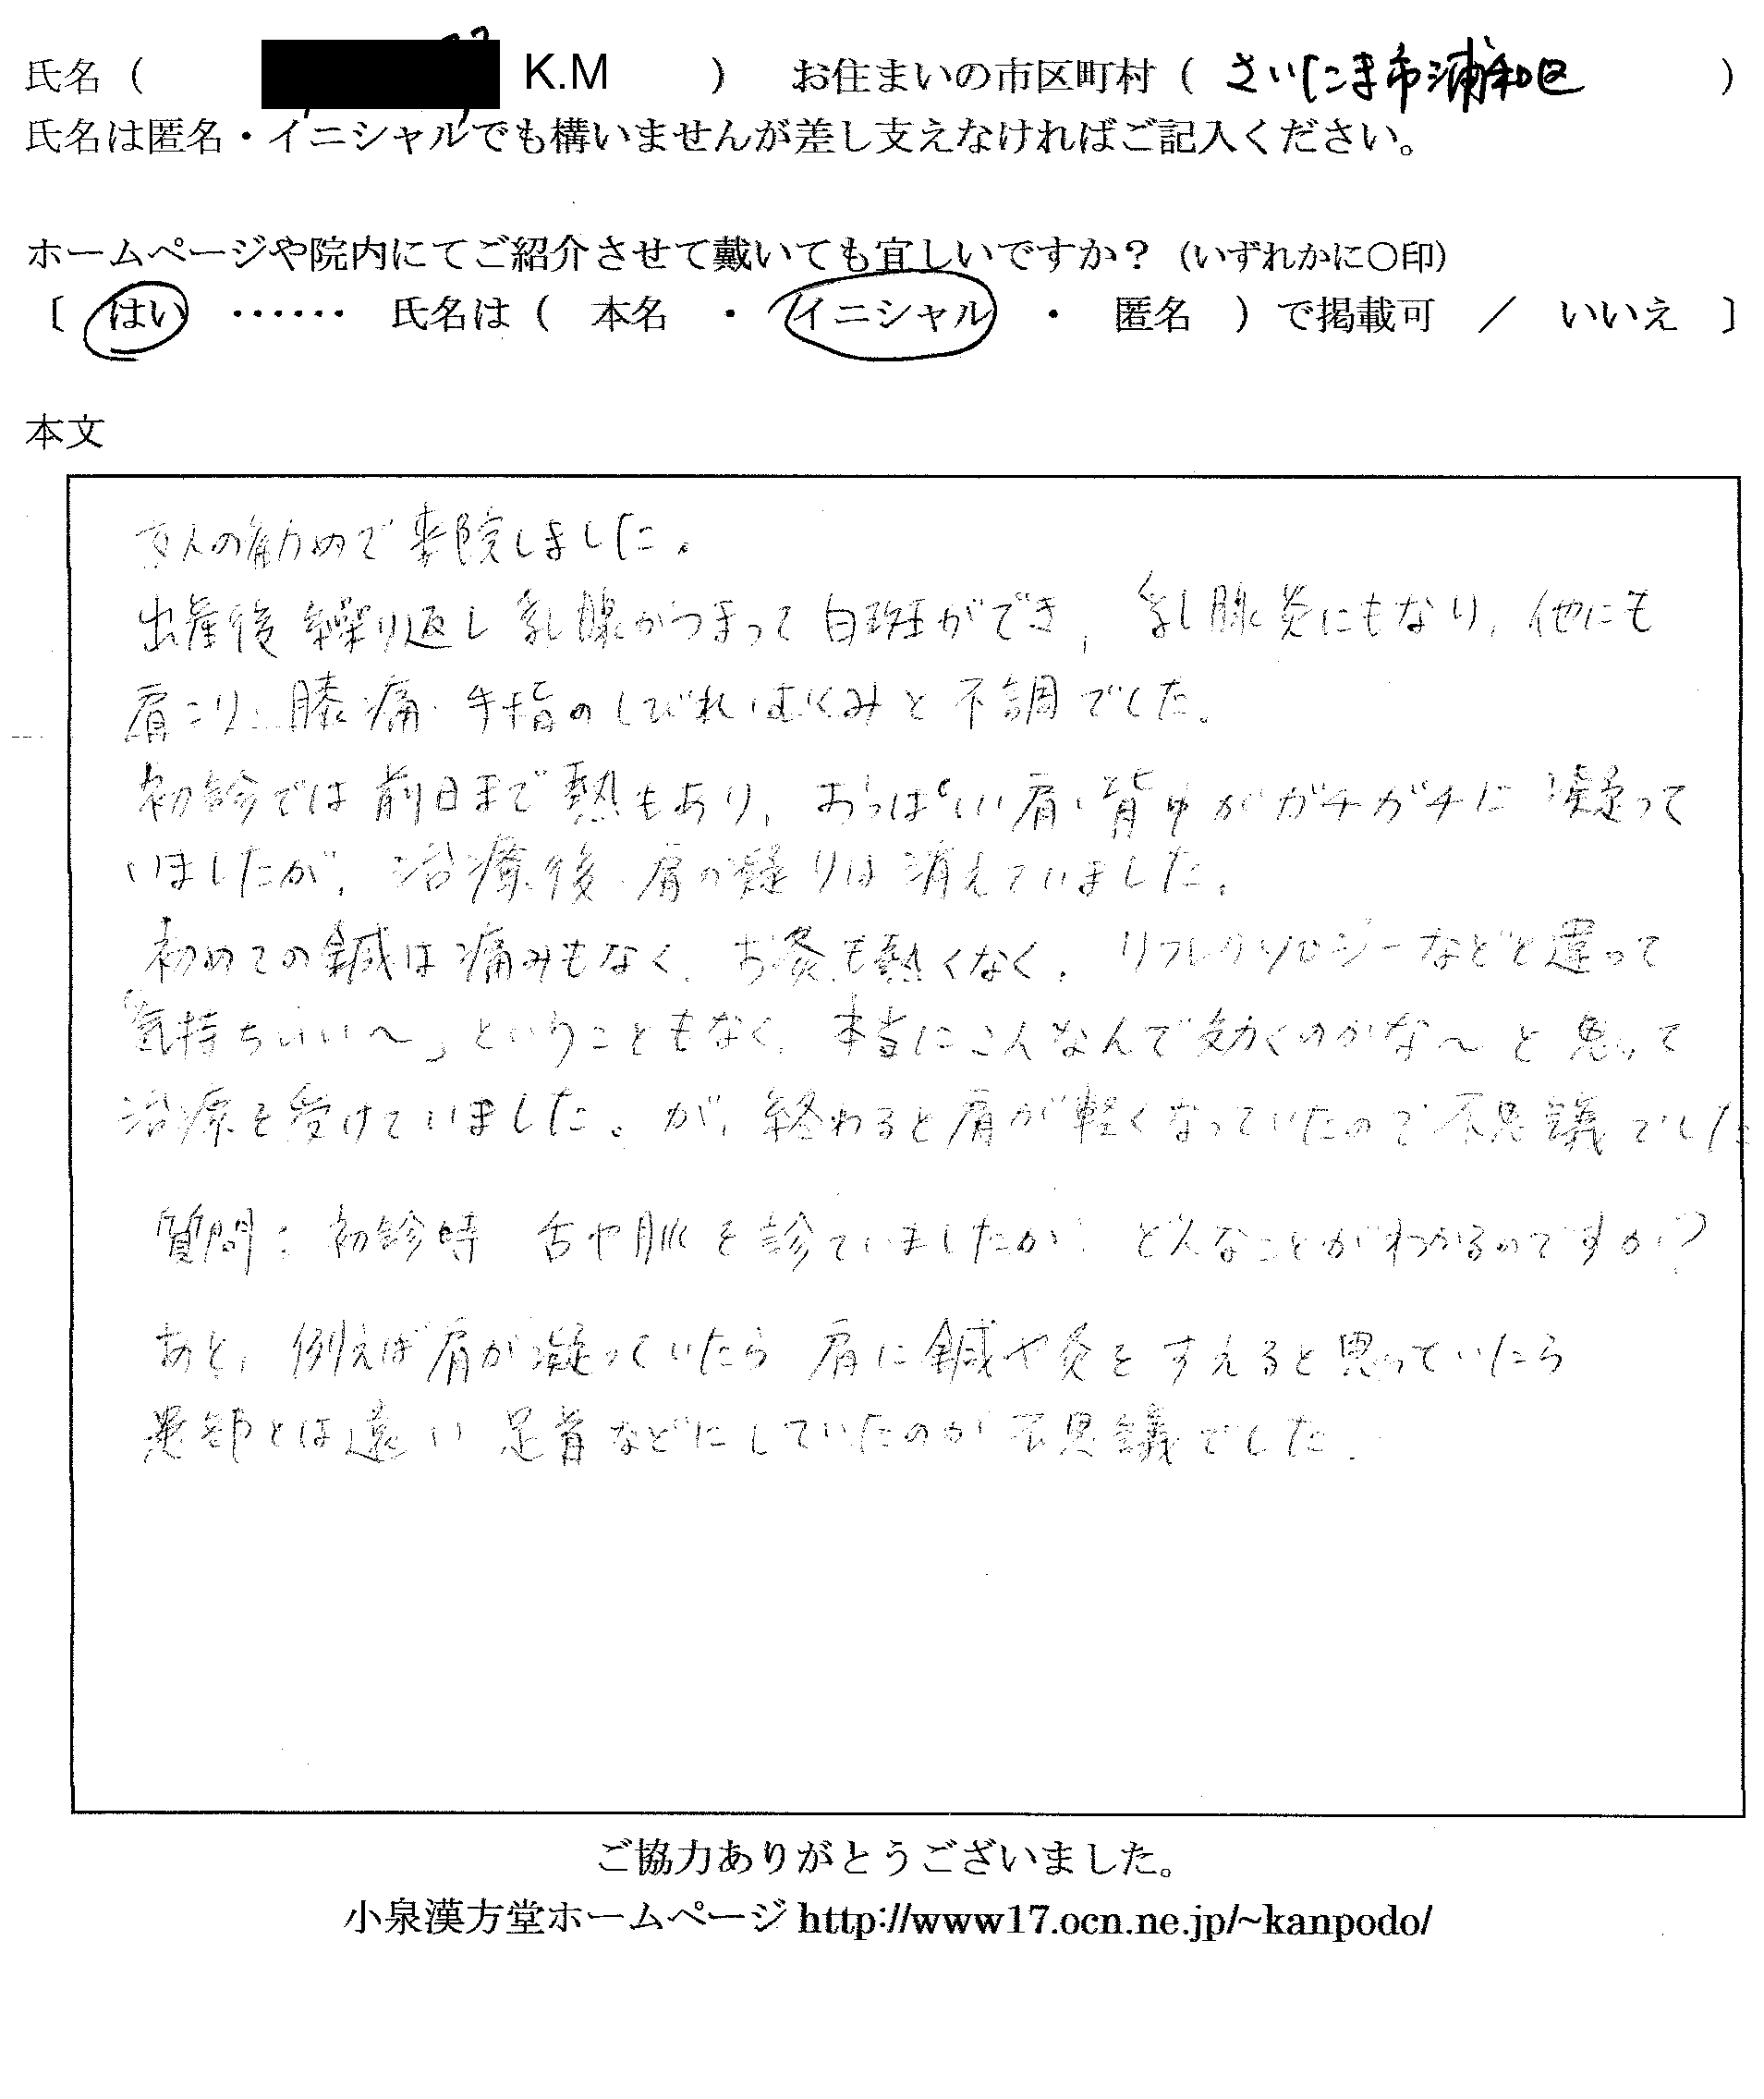 氏名（ K.M ） お住まいの市区町村（ さいたま市浦和区 ）
氏名は匿名・イニシャルでも構いませんが差し支えなければご記入ください。
ホームページや院内にてご紹介させて戴いても宜しいですか？（いずれかに〇印）
〔 はい …… 氏名は（ 本名 ・ イニシャル ・ 匿名 ）で掲載可 ／ いいえ 〕
本文
友人の勧めで来院しました。
出産後繰り返し乳腺がつまって白斑ができ、乳腺炎にもなり、他にも
肩こり、膝痛、手指のしびれ、むくみと不調でした。
初診では前日まで熱もあり、おっぱい、肩、背中がガチガチに凝って
いましたが、治療後、肩の凝りは消えていました。
初めての鍼は痛みもなく、お灸も熱くなく、リフレクソロジーなどと違って
「気持ちいい〜」ということもなく、本当にこんなんで効くのかな〜と思って
治療を受けていました。が、終わると肩が軽くなっていたので不思議でした
質問：初診時 舌や脈を診ていましたが、どんなことがわかるのですか？
あと、例えば肩が凝っていたら肩に鍼や灸をすえると思っていたら
患部とは遠い足首などにしていたのが不思議でした。
ご協力ありがとうございました。
小泉漢方堂ホームページ http://www17.ocn.ne.jp/~kanpodo/